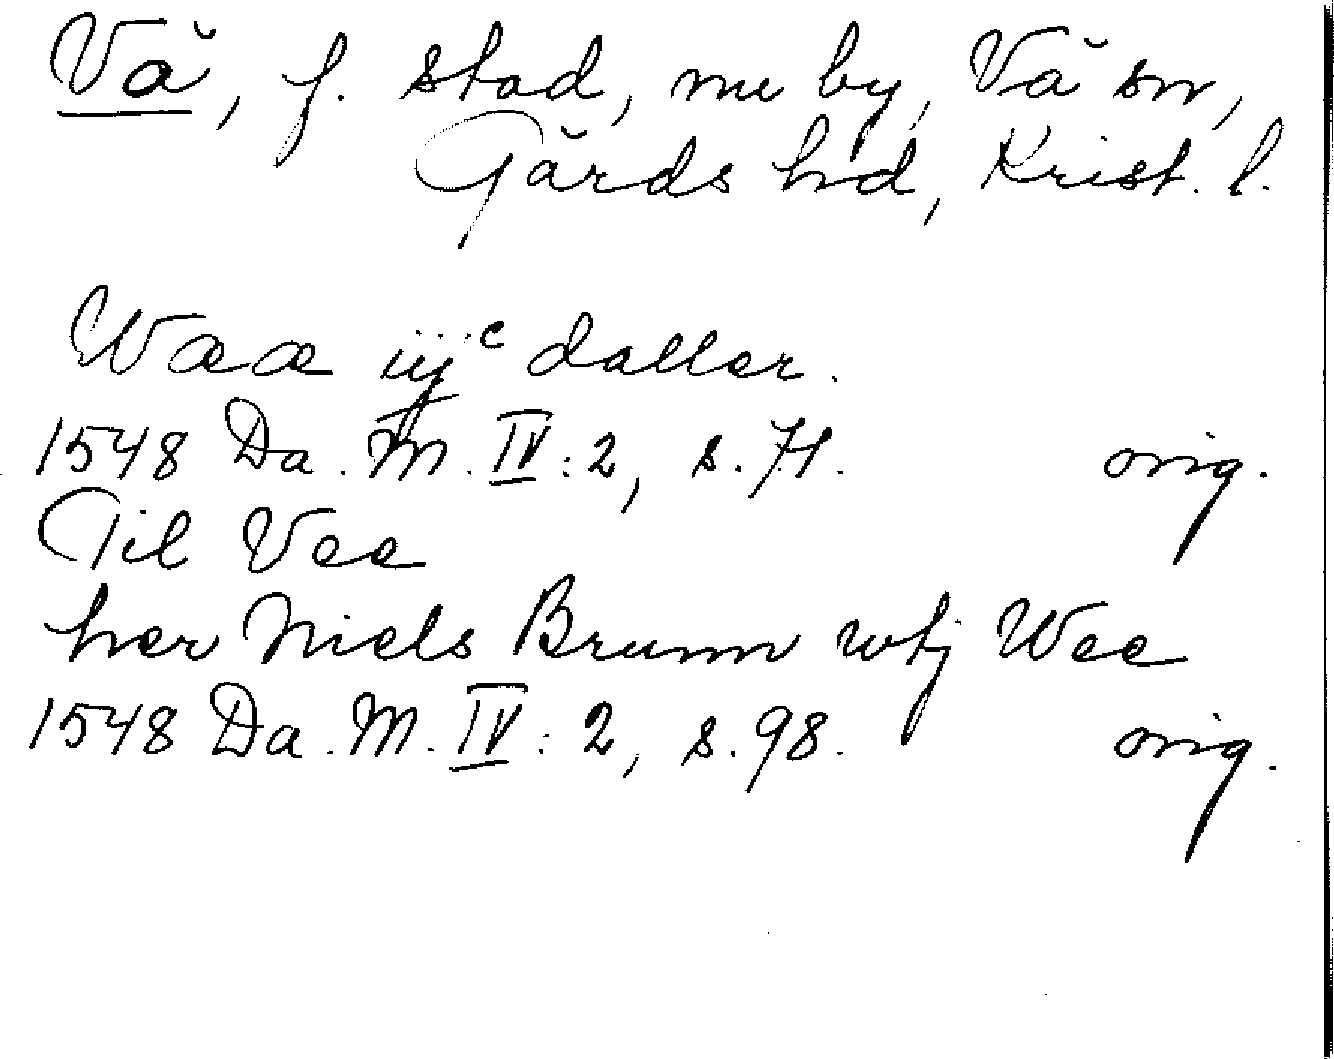 Vå, f. stad, nu by, Vå sn,
Gärds hd, Krist. l.
Waa iijc daller.
1548 Da. M. IV: 2, s. 71. orig.
Til Vee
her Niels Brunn wtj Wee
1548 Da. M. IV: 2, s. 98. orig.